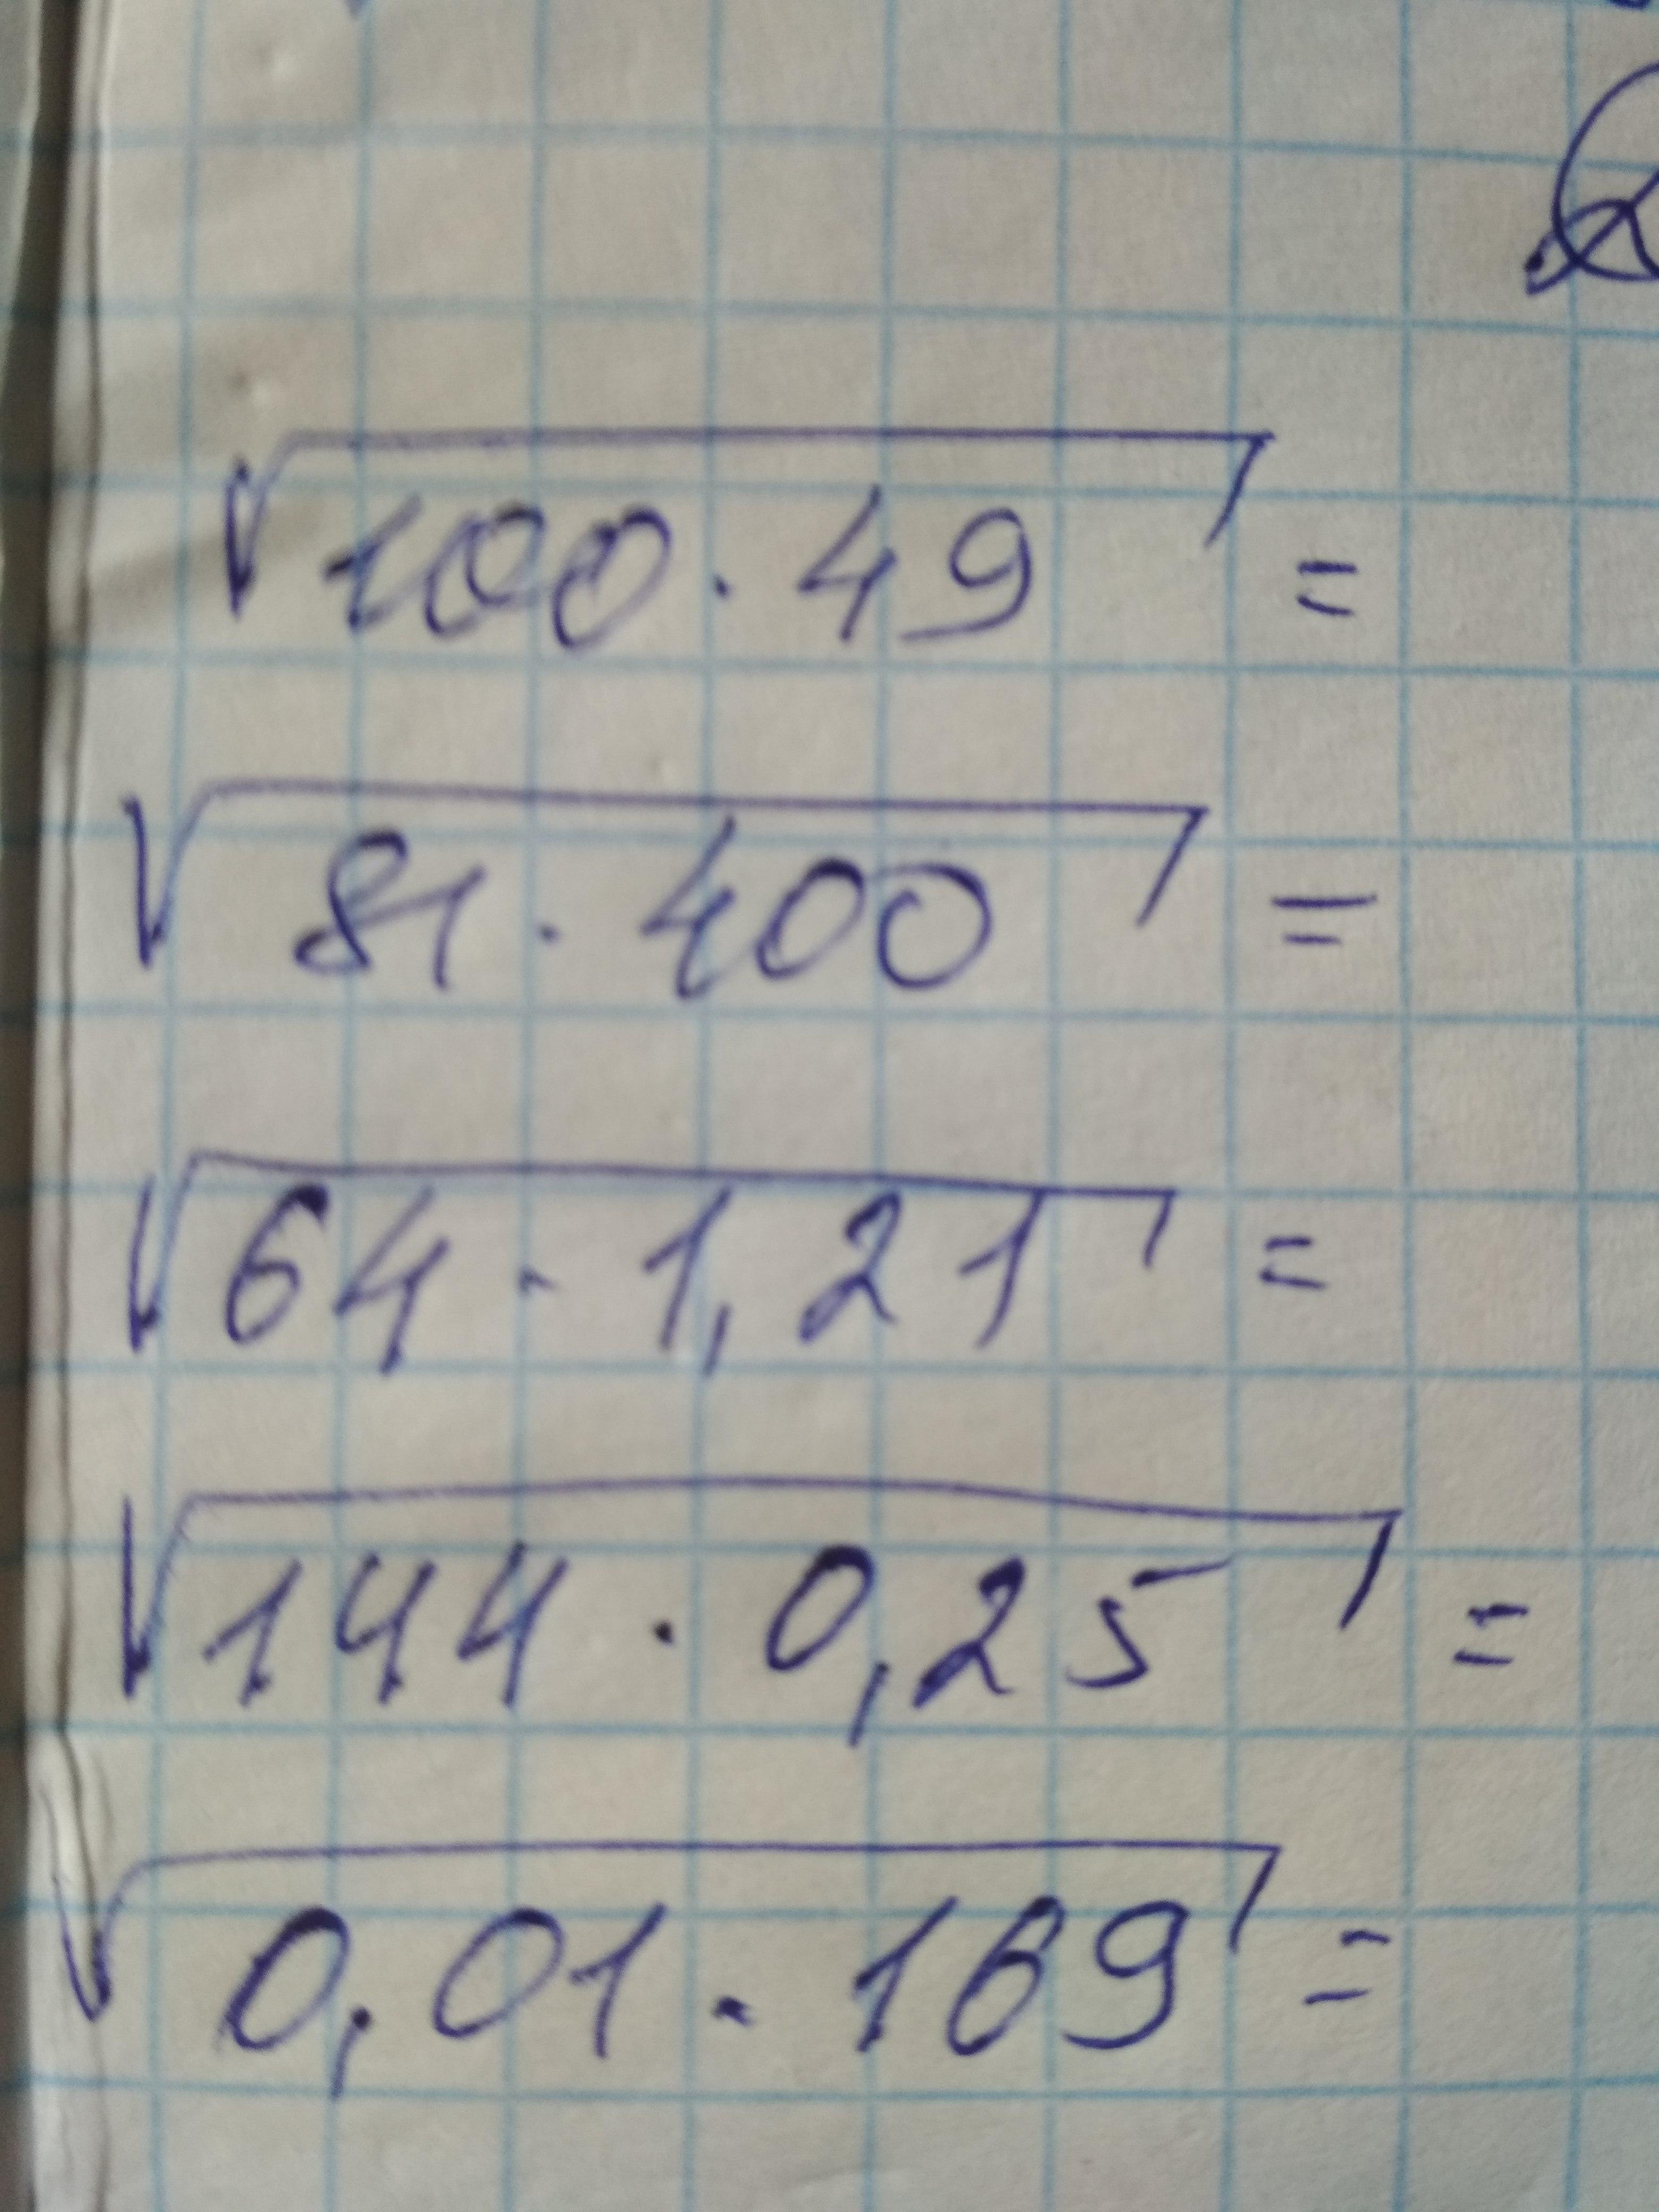 √100 · 49 =
√81 · 400 =
√64 · 1,21 =
√144 · 0,25 =
√0,01 · 169 =